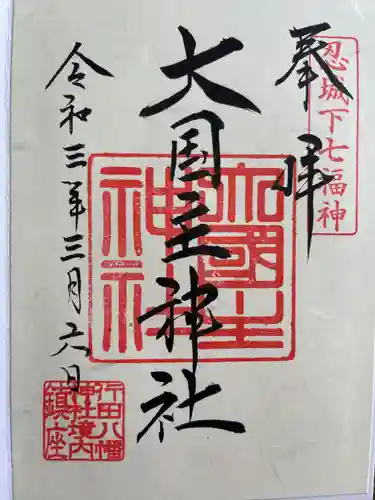 奉拝
忍城下七福神
大国主神社
大國主
神社
令和三年三月六日
行田八幡
神社境内
鎮座